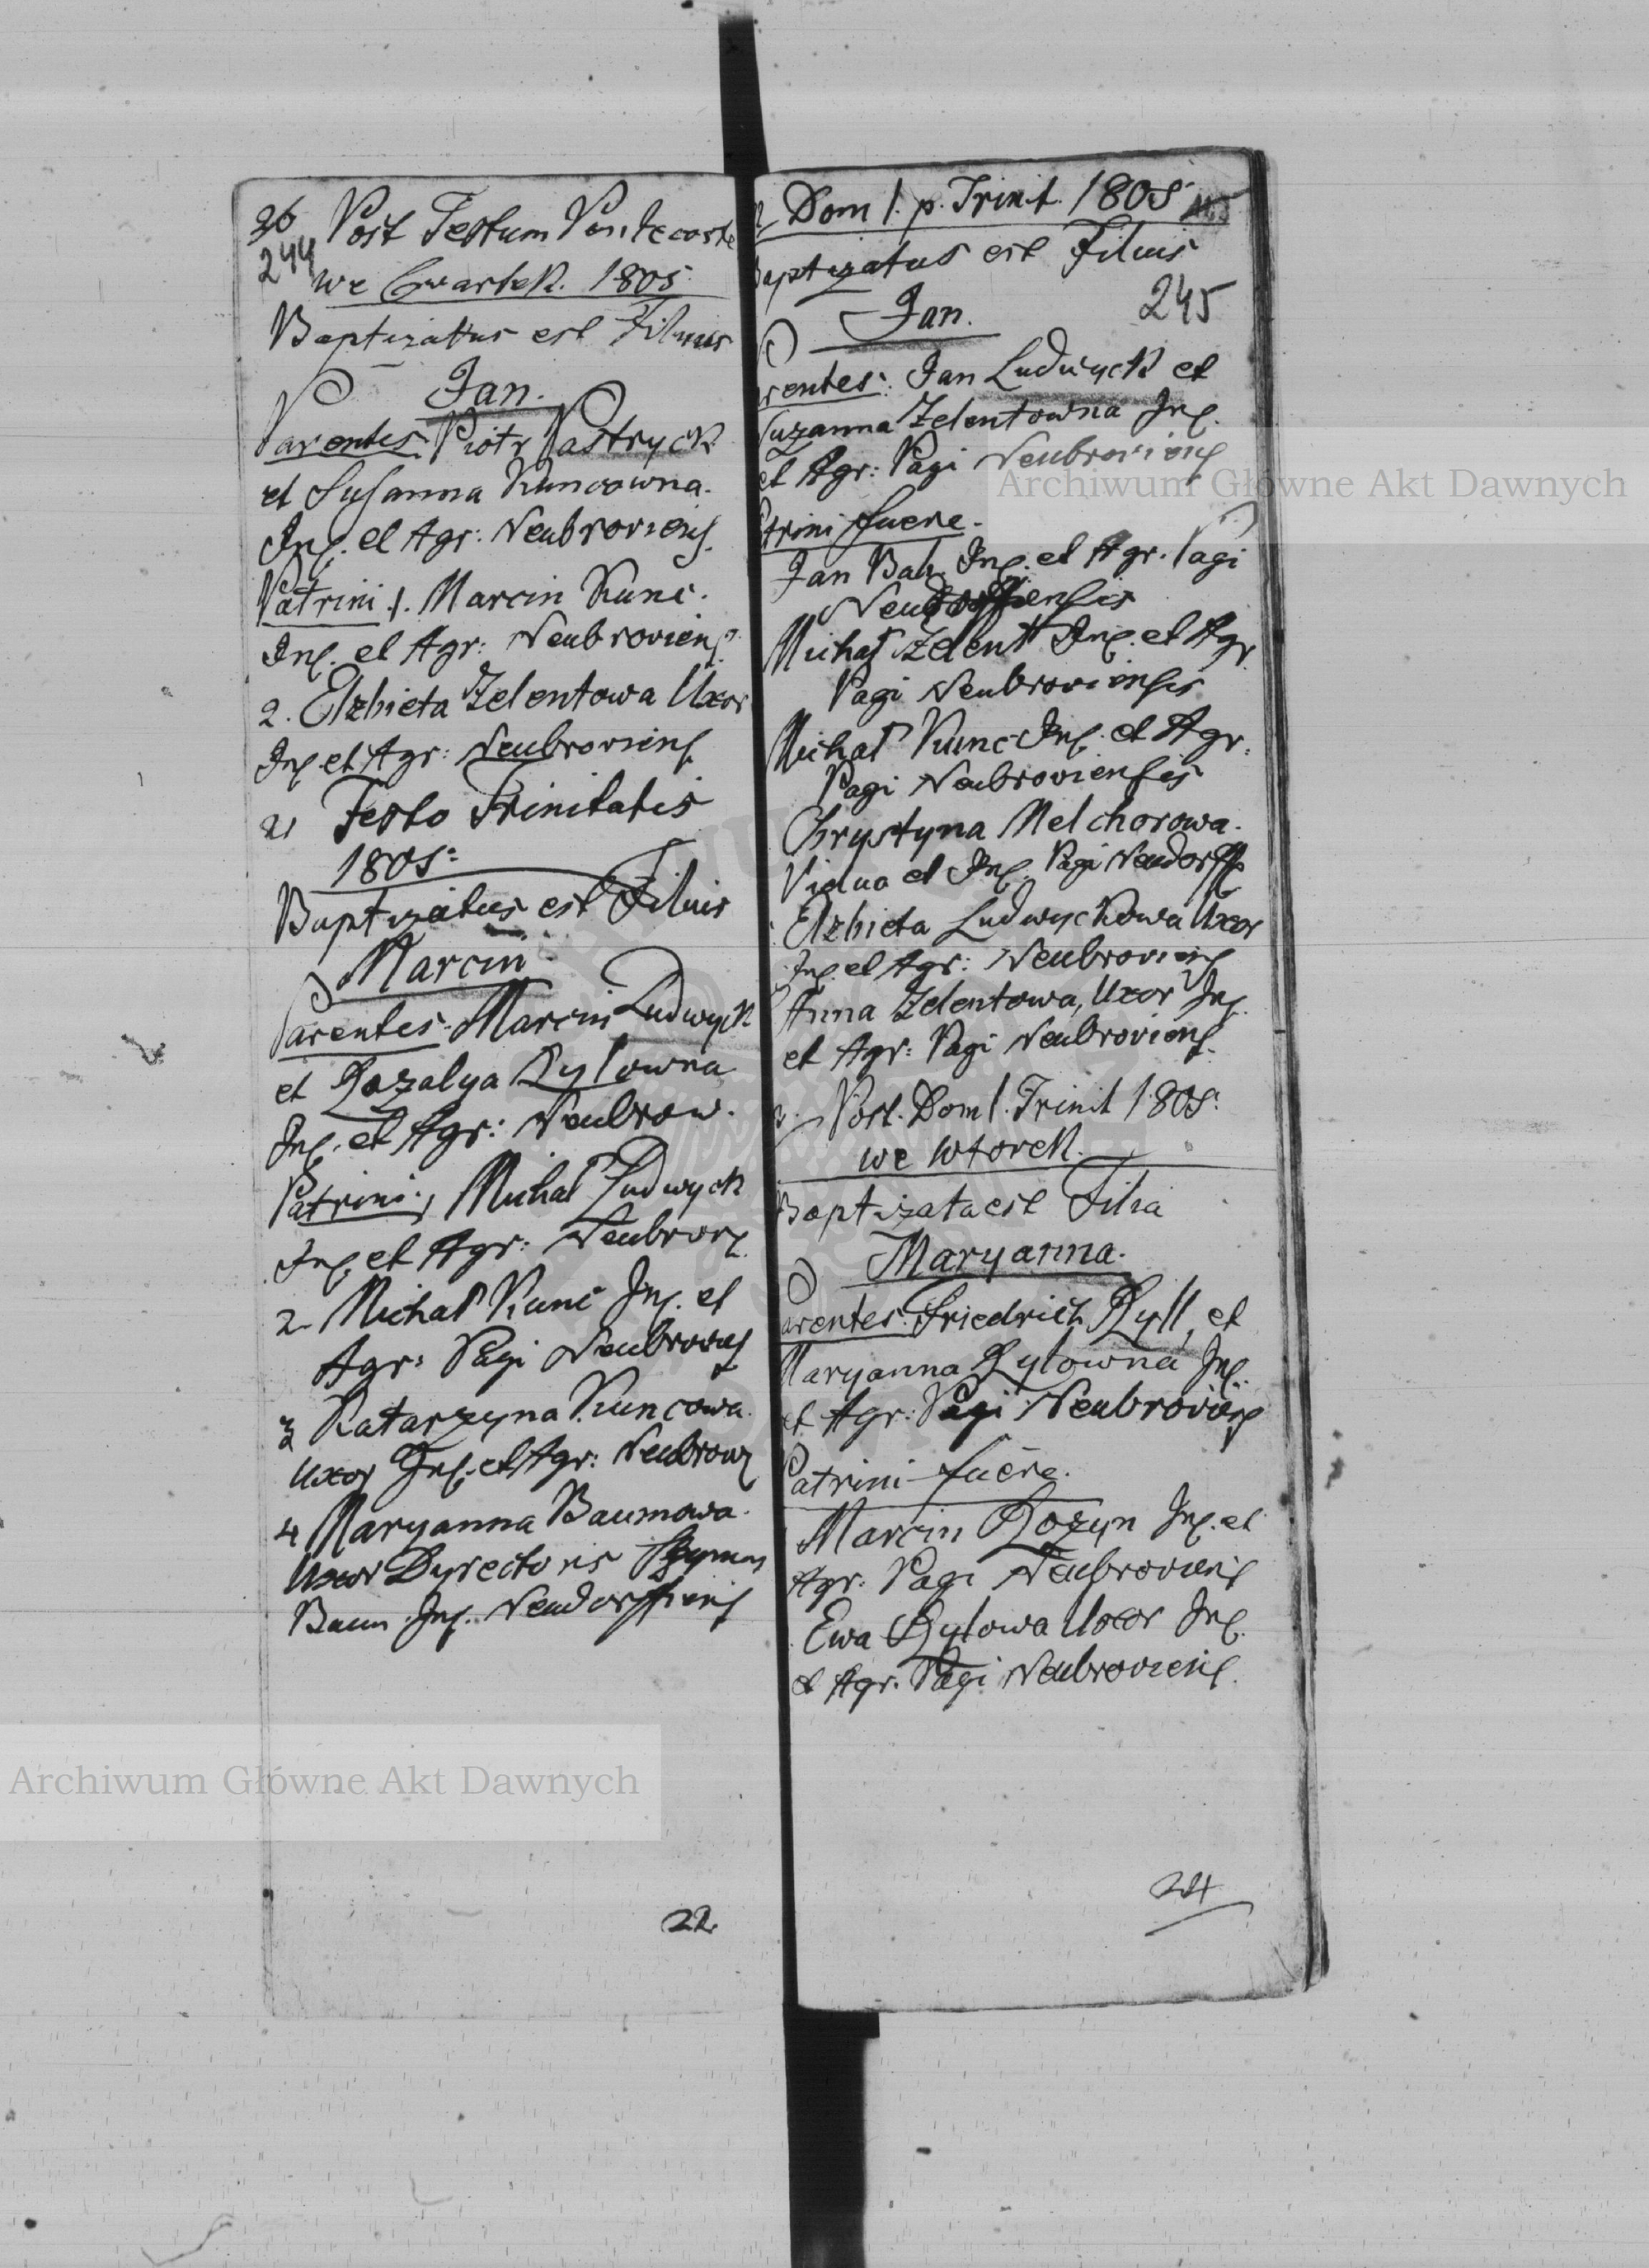 26 Post Festum Pentecoste
244
we Czwartek. 1805.
Baptizatus est Filius
Jan.
Parentes. Piotr Pastryck
et Susanna Kuncowna.
Inq. et Agr: Neubroviens.
Patrini 1. Marcin Kunc.
Inq. et Agr: Neubroviens.
2. Elzbieta Zelentowa Uxor
Inq. et Agr: Neubroviens.
21 Festo Trinitatis
1805:
Baptizatus est Filius
Marcin.
Parentes: Marcin Ludwyck
et Rozalya Rylowna
Inq. et Agr: Neubrow.
Patrini: 1 Michał Ludwyck
Inq. et Agr: Neubrov.
2. Michał Kunc Inq. et
Agr: Pagi Neubrovs
3 Katarzyna Kuncowa.
Uxor Inq. et Agr: Neubrow
4 Maryanna Baumowa.
Uxor Dyrectoris
Baum Inq. Neudorffiens
22.
Dom 1. p. Trinit. 1805
aptizatus est Filius
245
Jan.
rentes: Jan Ludwyck et
Zuzanna Zelentowna Inq.
et Agr: Pagi Neubroviens
trini fuere.
Jan Bah Inq. et Agr. Pagi
Neudorffiensis
Michał Zelent Inq. et Agr
Pagi Neubroviensis
Michał Kunc Inq. et Agr.
Pagi Neubroviensis
Chrystyna Melchorowa.
Vidua et Inq. Pagi Neudorff
Elzbieta Ludwyckowa Uxor
Inq. et Agr: Neubroviens
Anna Zelentowa, Uxor Inq.
et Agr: Pagi Neubroviens.
Post. Dom 1. Trinit 1805.
we wtorek.
Baptizata est Filia
Maryanna.
arentes: Friedrich Ryll, et
Maryanna Rylowna Inq.
et Agr: Pagi Neubroviens
Patrini fuere.
Marcin Rozyn Inq. et
Agr. Pagi Neubroviens
Ewa Rylowa Uxor Inq.
et Agr. Pagi Neubroviens.
24
Archiwum Główne Akt Dawnych
Archiwum Główne Akt Dawnych